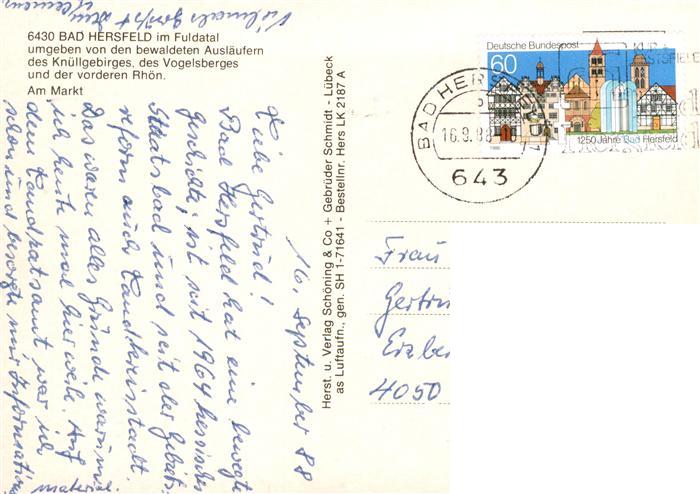 6430 BAD HERSFELD im Fuldatal
umgeben von den bewaldeten Ausläufern
des Knüllgebirges, des Vogelsberges
und der vorderen Rhön.
Am Markt
16. September 88
Liebe Gertrud!
Bad Hersfeld hat eine bewegte
Geschichte, ist seit 1964 hessisches
Staatsbad und seit der Gebiets-
reform auch Landkreisstadt.
Das waren alles Gründe warum
ich heute mal hier weile. Auf
dem Landratsamt war ich
schon und besorgte mir Informations
material.
Vielmals grüßt Dein
Klemens.
Herst. u. Verlag Schöning & Co + Gebrüder Schmidt - Lübeck
as Luftaufn., gen. SH 1-71641 - Bestellnr. Hers LK 2187 A
Deutsche Bundespost
60
1250 Jahre Bad Hersfeld
1986
BAD HERSFELD 1
16.9.88
643
Frau
Gertru
Erzbe
4050